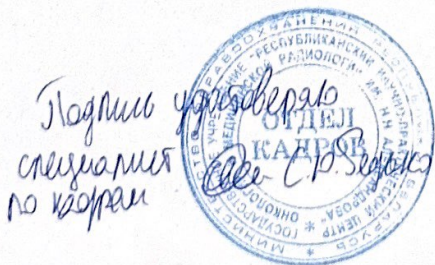 Подпись удостоверяю
специалист
по кадрам
ОТДЕЛ
КАДРОВ
МИНИСТЕРСТВО ЗДРАВООХРАНЕНИЯ РЕСПУБЛИКИ БЕЛАРУСЬ *
ГОСУДАРСТВЕННОЕ УЧРЕЖДЕНИЕ "РЕСПУБЛИКАНСКИЙ НАУЧНО-ПРАКТИЧЕСКИЙ ЦЕНТР
ОНКОЛОГИИ И МЕДИЦИНСКОЙ РАДИОЛОГИИ ИМ. Н.Н. АЛЕКСАНДРОВА" *